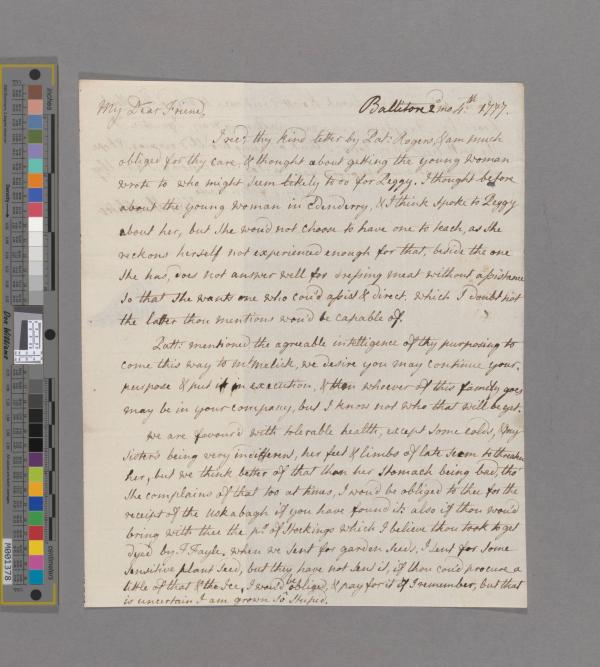 My Dear Friend,
Ballitore 2 mo 4th 1777.
I recd thy kind letter by Patt: Rogers, & am much
obliged for thy care, & thought about getting the young woman
wrote to who might seem likely to do for Peggy. I thought before
about the young woman in Edenderry, & I think spoke to Peggy
about her, but she woud not choose to have one to teach, as she
reckons herself not experienced enough for that, beside the one
she has, does not answer well for dressing meat without assistance
so that she wants one who cou'd assist & direct, which I doubt not
the latter thou mentions wou'd be capable of.
Patt: mentioned the agreable intelligence of thy purposing to
come this way to Mt melick, we desire you may continue your
purpose & put it in execution, & then whoever of this family goes
may be in your company, but I know not who that will be yet.
We are favour'd with tolerable health, except some colds, & my
Sister's being very indifferent, her feet & limbs of late seem to threaten
her, but we think better of that than her stomach being bad, tho'
she complains of that too at times, I wou'd be obliged to thee for the
receipt of the Uskabagh if you have found it: also if thou wou'd
bring with thee the pr. of Stockings which I believe thou took to get
dyed by J. Fayle, when we sent for garden seeds, I sent for some
Sensitive plant seed, but they have not sent it, if thou cou'd procure a
little of that & the Ice, I wou'd be obliged, & pay for it if I remember, but that
is uncertain I am grown so stupid.
inches
Don Williams
centimetres
M001378